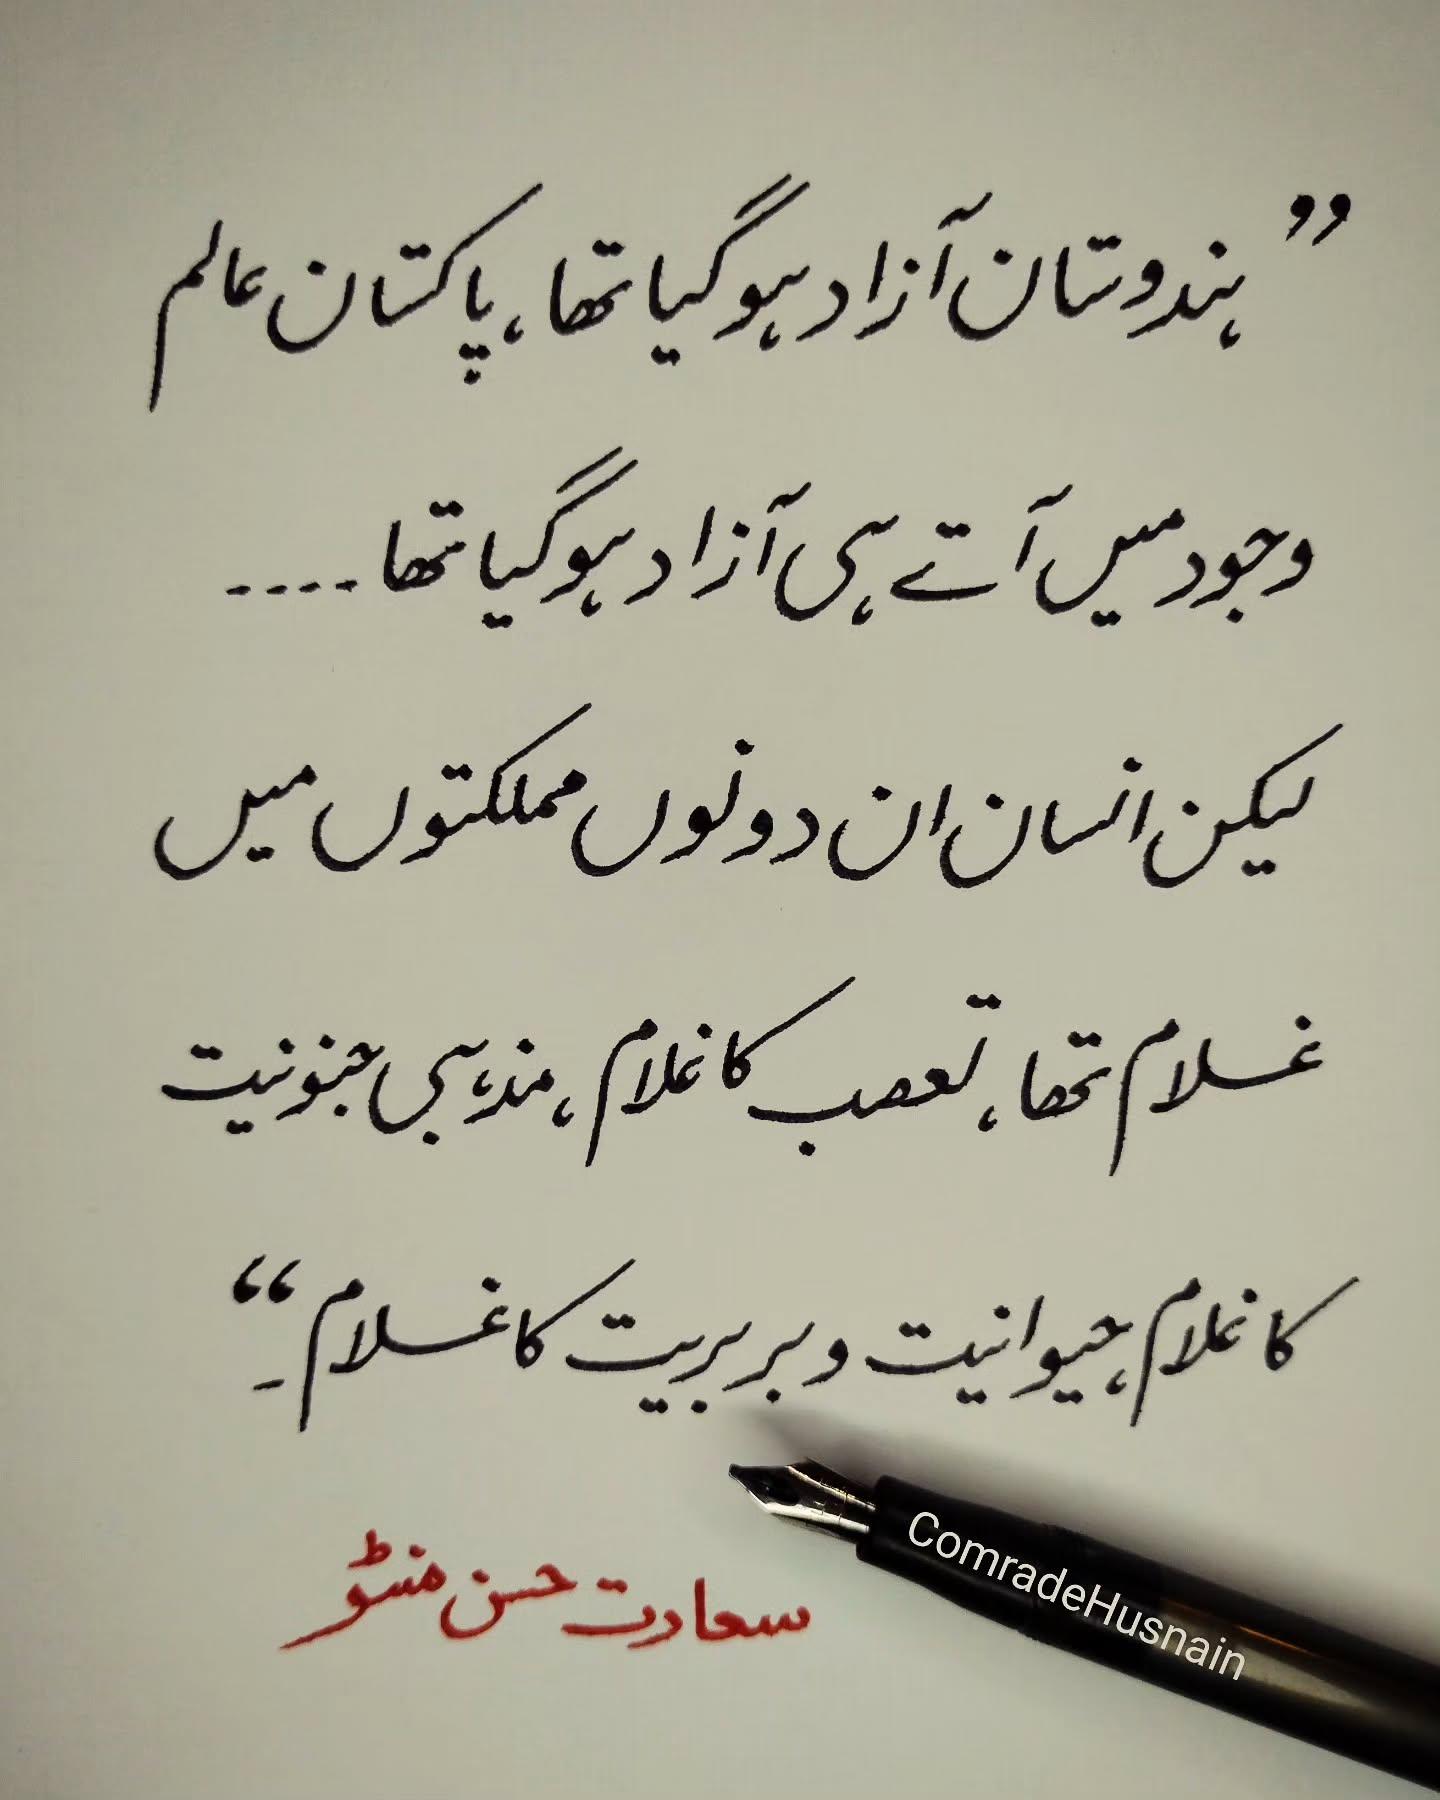 ”ہندوستان آزاد ہو گیا تھا، پاکستان عالم
وجود میں آتے ہی آزاد ہو گیا تھا ۔۔۔۔
لیکن انسان ان دونوں مملکتوں میں
غلام تھا، تعصب کا غلام، مذہبی جنونیت
کا غلام، حیوانیت و بربریت کا غلام۔“
سعادت حسن منٹو
ComradeHusnain